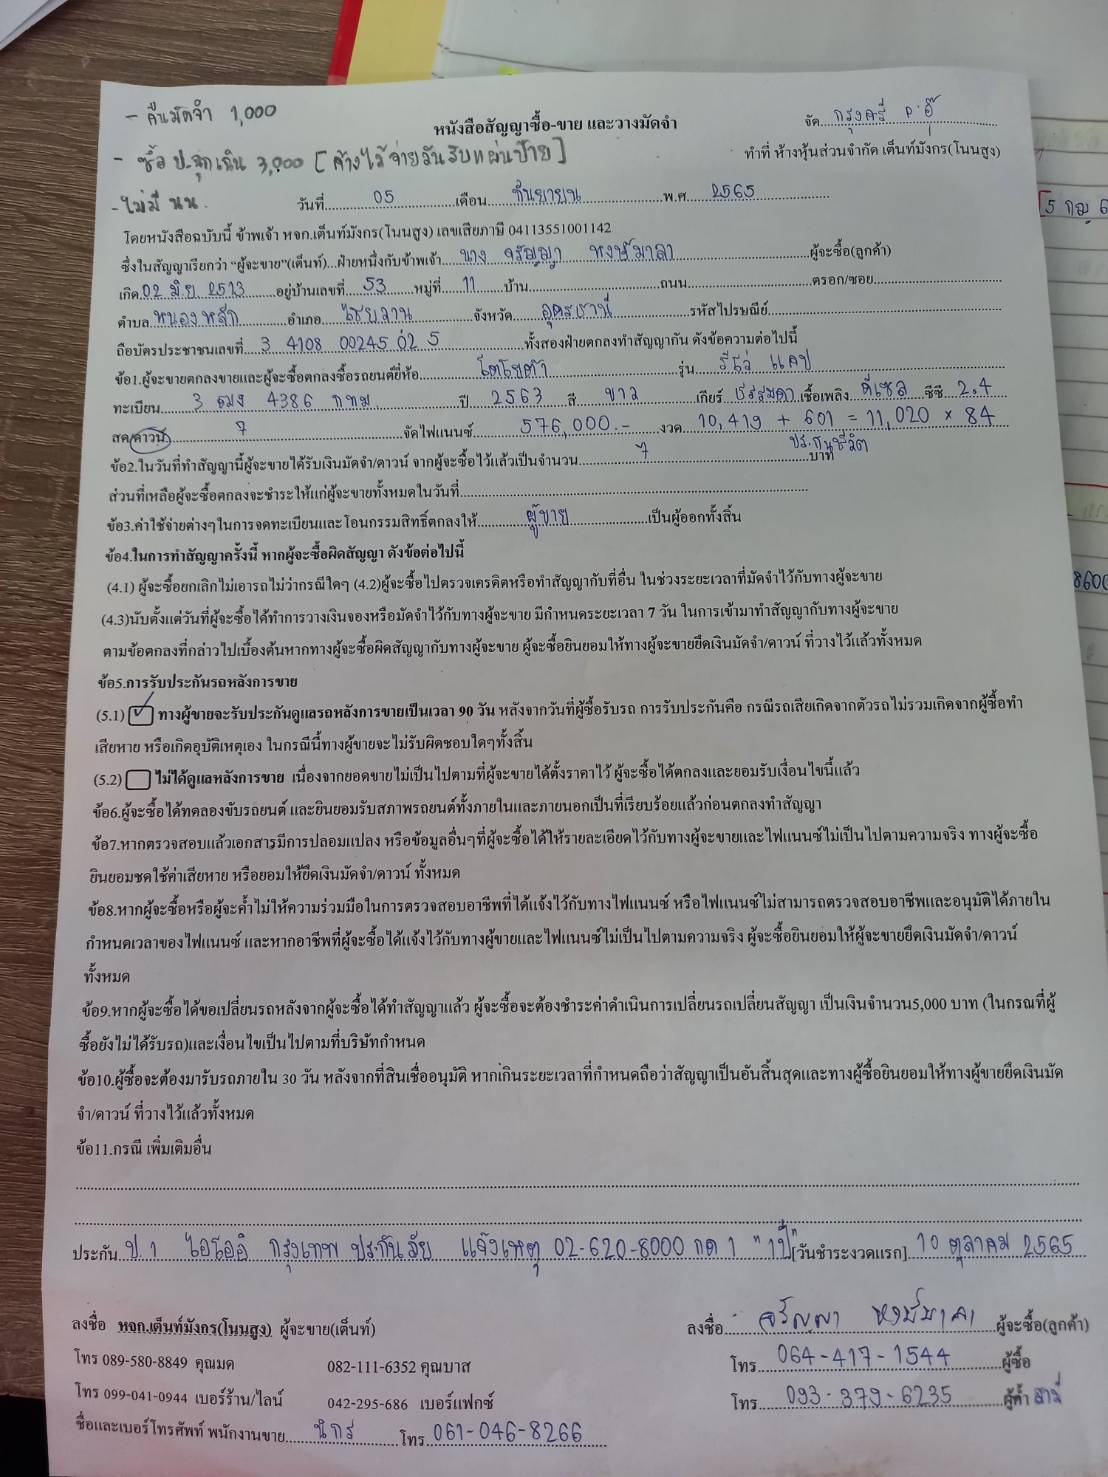 - คืนมัดจำ 1,000
หนังสือสัญญาซื้อ-ขาย และวางมัดจำ
จัด กรุงศรี P'อุ๊
- ซื้อ ป.ฉุกเฉิน 3,900 [ค้างไว้จ่ายวันรับแผ่นป้าย]
ทำที่ ห้างหุ้นส่วนจำกัด เต็นท์มังกร(โนนสูง)
- ไม่มี นน.
วันที่ 05 เดือน กันยายน พ.ศ. 2565
โดยหนังสือฉบับนี้ ข้าพเจ้า หจก.เต็นท์มังกร(โนนสูง) เลขเสียภาษี 04113551001142
ซึ่งในสัญญาเรียกว่า "ผู้จะขาย"(เต็นท์)...ฝ่ายหนึ่งกับข้าพเจ้า นาง จรัญญา หงษ์มาลา ผู้จะซื้อ(ลูกค้า)
เกิด 02 มิย 2513 อยู่บ้านเลขที่ 53 หมู่ที่ 11 บ้าน ถนน ตรอก/ซอย
ตำบล หนองหลัก อำเภอ ไชยวาน จังหวัด อุดรธานี รหัสไปรษณีย์
ถือบัตรประชาชนเลขที่ 3 4108 00245 02 5 ทั้งสองฝ่ายตกลงทำสัญญากัน ดังข้อความต่อไปนี้
ข้อ1.ผู้จะขายตกลงขายและผู้จะซื้อตกลงซื้อรถยนต์ยี่ห้อ โตโยต้า รุ่น รีโว่ แคป
ทะเบียน 3 ฒง 4386 กทม ปี 2563 สี ขาว เกียร์ ธรรมดา เชื้อเพลิง ดีเซล ซีซี 2.4
สด/ดาวน์ 7 จัดไฟแนนซ์ 576,000.- งวด 10,419 + 601 = 11,020 × 84
ปร.กันชีวิต
ข้อ2.ในวันที่ทำสัญญานี้ผู้จะขายได้รับเงินมัดจำ/ดาวน์ จากผู้จะซื้อไว้แล้วเป็นจำนวน 7 บาท
ส่วนที่เหลือผู้จะซื้อตกลงจะชำระให้แก่ผู้จะขายทั้งหมดในวันที่
ข้อ3.ค่าใช้จ่ายต่างๆในการจดทะเบียนและโอนกรรมสิทธิ์ตกลงให้ ผู้ขาย เป็นผู้ออกทั้งสิ้น
ข้อ4.ในการทำสัญญาครั้งนี้ หากผู้จะซื้อผิดสัญญา ดังข้อต่อไปนี้
(4.1) ผู้จะซื้อยกเลิกไม่เอารถไม่ว่ากรณีใดๆ (4.2)ผู้จะซื้อไปตรวจเครดิตหรือทำสัญญากับที่อื่น ในช่วงระยะเวลาที่มัดจำไว้กับทางผู้จะขาย
(4.3)นับตั้งแต่วันที่ผู้จะซื้อได้ทำการวางเงินจองหรือมัดจำไว้กับทางผู้จะขาย มีกำหนดระยะเวลา 7 วัน ในการเข้ามาทำสัญญากับทางผู้จะขาย
ตามข้อตกลงที่กล่าวไปเบื้องต้นหากทางผู้จะซื้อผิดสัญญากับทางผู้จะขาย ผู้จะซื้อยินยอมให้ทางผู้จะขายยึดเงินมัดจำ/ดาวน์ ที่วางไว้แล้วทั้งหมด
ข้อ5.การรับประกันรถหลังการขาย
(5.1) ทางผู้ขายจะรับประกันดูแลรถหลังการขายเป็นเวลา 90 วัน หลังจากวันที่ผู้ซื้อรับรถ การรับประกันคือ กรณีรถเสียเกิดจากตัวรถไม่รวมเกิดจากผู้ซื้อทำ
เสียหาย หรือเกิดอุบัติเหตุเอง ในกรณีนี้ทางผู้ขายจะไม่รับผิดชอบใดๆทั้งสิ้น
(5.2) ไม่ได้ดูแลหลังการขาย เนื่องจากยอดขายไม่เป็นไปตามที่ผู้จะขายได้ตั้งราคาไว้ ผู้จะซื้อได้ตกลงและยอมรับเงื่อนไขนี้แล้ว
ข้อ6.ผู้จะซื้อได้ทดลองขับรถยนต์ และยินยอมรับสภาพรถยนต์ทั้งภายในและภายนอกเป็นที่เรียบร้อยแล้วก่อนตกลงทำสัญญา
ข้อ7.หากตรวจสอบแล้วเอกสารมีการปลอมแปลง หรือข้อมูลอื่นๆที่ผู้จะซื้อได้ให้รายละเอียดไว้กับทางผู้จะขายและไฟแนนซ์ไม่เป็นไปตามความจริง ทางผู้จะซื้อ
ยินยอมชดใช้ค่าเสียหาย หรือยอมให้ยึดเงินมัดจำ/ดาวน์ ทั้งหมด
ข้อ8.หากผู้จะซื้อหรือผู้จะค้ำไม่ให้ความร่วมมือในการตรวจสอบอาชีพที่ได้แจ้งไว้กับทางไฟแนนซ์ หรือไฟแนนซ์ไม่สามารถตรวจสอบอาชีพและอนุมัติได้ภายใน
กำหนดเวลาของไฟแนนซ์ และหากอาชีพที่ผู้จะซื้อได้แจ้งไว้กับทางผู้ขายและไฟแนนซ์ไม่เป็นไปตามความจริง ผู้จะซื้อยินยอมให้ผู้จะขายยึดเงินมัดจำ/ดาวน์
ทั้งหมด
ข้อ9.หากผู้จะซื้อได้ขอเปลี่ยนรถหลังจากผู้จะซื้อได้ทำสัญญาแล้ว ผู้จะซื้อจะต้องชำระค่าดำเนินการเปลี่ยนรถเปลี่ยนสัญญา เป็นเงินจำนวน5,000 บาท (ในกรณที่ผู้
ซื้อยังไม่ได้รับรถ)และเงื่อนไขเป็นไปตามที่บริษัทกำหนด
ข้อ10.ผู้ซื้อจะต้องมารับรถภายใน 30 วัน หลังจากที่สินเชื่ออนุมัติ หากเกินระยะเวลาที่กำหนดถือว่าสัญญาเป็นอันสิ้นสุดและทางผู้ซื้อยินยอมให้ทางผู้ขายยึดเงินมัด
จำ/ดาวน์ ที่วางไว้แล้วทั้งหมด
ข้อ11.กรณี เพิ่มเติมอื่น
ประกัน ป.1 ไอโออิ กรุงเทพ ประกันภัย แจ้งเหตุ 02-620-8000 กด 1 "1ปี" [วันชำระงวดแรก] 10 ตุลาคม 2565
ลงชื่อ หจก.เต็นท์มังกร(โนนสูง) ผู้จะขาย(เต็นท์)
ลงชื่อ จรัญญา หงษ์มาลา ผู้จะซื้อ(ลูกค้า)
โทร 089-580-8849 คุณมด 082-111-6352 คุณบาส
โทร 064-417-1544 ผู้ซื้อ
โทร 099-041-0944 เบอร์ร้าน/ไลน์ 042-295-686 เบอร์แฟกซ์
โทร 093-379-6235 ผู้ค้ำ สามี
ชื่อและเบอร์โทรศัพท์ พนักงานขาย นิกร โทร 061-046-8266